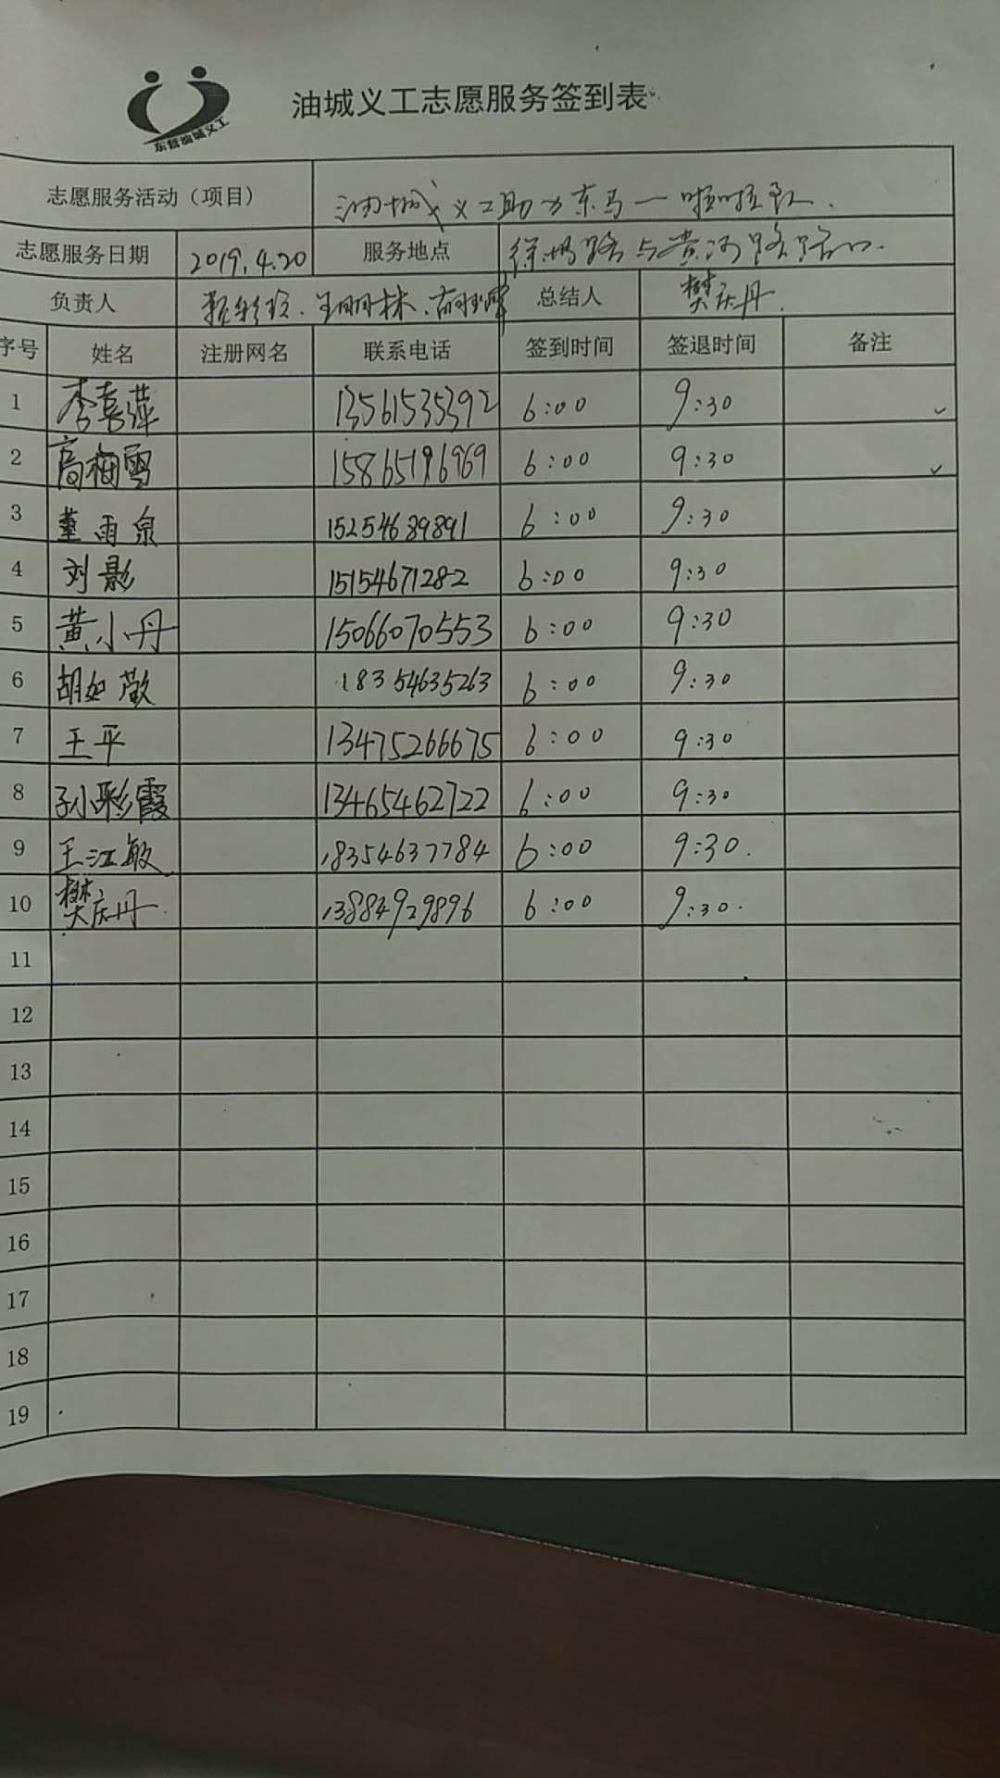 东营油城义工
油城义工志愿服务签到表
志愿服务活动（项目） 油城义工助力东马一啦啦队.
志愿服务日期 2019.4.20 服务地点 徐州路与黄河路路口.
负责人 总结人 樊庆丹.
序号 姓名 注册网名 联系电话 签到时间 签退时间 备注
1 李喜萍 13561535392 6:00 9:30 ✓
2 高梅雪 15865196969 6:00 9:30 ✓
3 董雨泉 15254689891 6:00 9:30
4 刘影 15154671282 6:00 9:30
5 黄小丹 15066070553 6:00 9:30
6 胡如 18354635263 6:00 9:30
7 王平 13475266675 6:00 9:30
8 孙彩霞 13465462722 6:00 9:30
9 王江敏 18354637784 6:00 9:30.
10 樊庆丹. 13884929896 6:00 9:30.
11
12
13
14
15
16
17
18
19